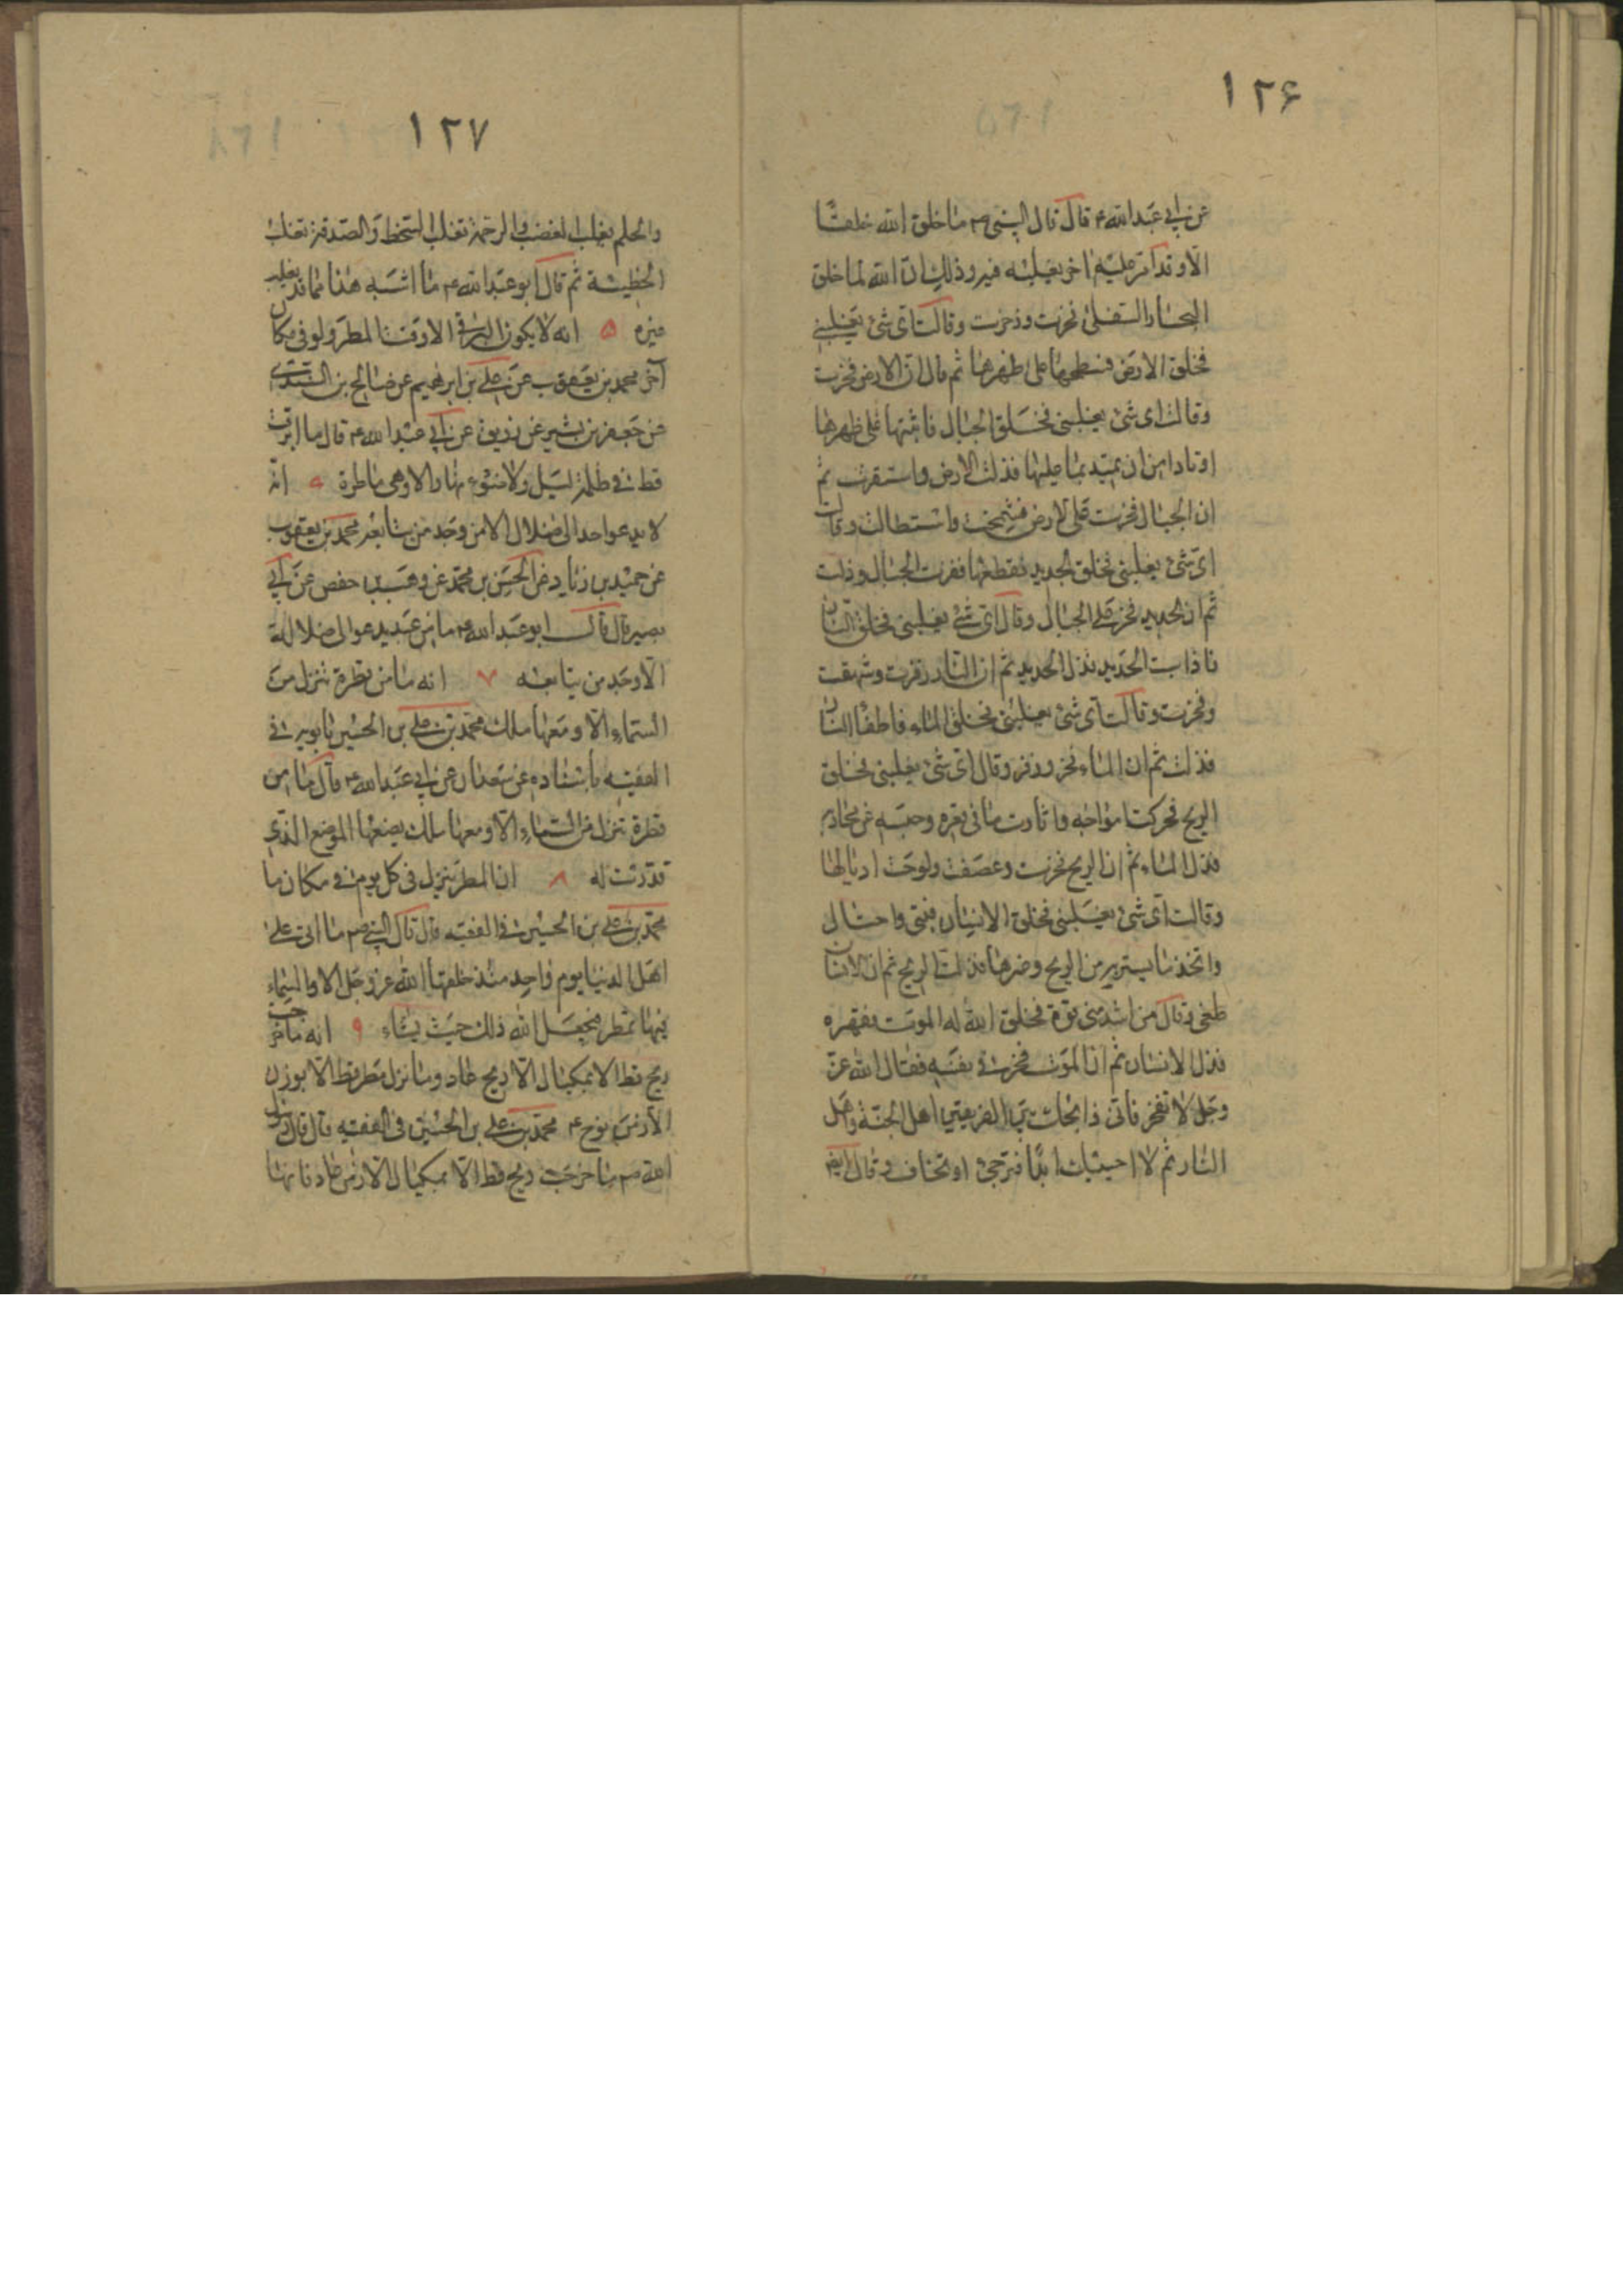 ١٢۶
عن ابي عبد الله ع قال قال النبي ص ما خلق الله خلقا
الا وقد امر عليه اخر يغلبه فيه وذلك ان الله لما خلق
البحار السفلى فخرت وزخرت وقالت اى شئ يغلبني
فخلق الارض فسطحها على ظهرها ثم قال ان الارض فخرت
وقالت اى شئ يغلبنى فخلق الجبال فاثبتها على ظهرها
اوتادا من ان تميد بما عليها فذلت الارض واستقرت ثم
ان الجبال فخرت على الارض فشمخت واستطالت وقالت
اى شئ يغلبنى فخلق الحديد فقطعها فقرت الجبال وذلت
ثم ان الحديد فخر على الجبال وقال اى شئ يغلبنى فخلق النار
فاذابت الحديد فذل الحديد ثم ان النار زفرت وشهقت
وفخرت وقالت اى شئ يغلبنى فخلق الماء فاطفا النار
فذلت ثم ان الماء فخر وزخر وقال اى شئ يغلبنى فخلق
الريح فحركت امواجه واثارت ما فى قعره وحبسه عن مجاريه
فذل الماء ثم ان الريح فخرت وعصفت ولوحت اذيالها
وقالت اى شئ يغلبنى فخلق الانسان فبنى واحتال
واتخذ ما يستتر به من الريح وغيرها فذلت الريح ثم ان الانسان
طغى وقال من اشد منى قوة فخلق الله له الموت فقهره
فذل الانسان ثم ان الموت فخر فى نفسه فقال الله عز
وجل لا تفخر فانى ذابحك بين الفريقين اهل الجنة واهل
النار ثم لا احييك ابدا فترجى او تخاف وقال ايضا
١٢٧
والحلم يغلب الغضب والرحمة تغلب السخط والصدقة تغلب
الخطيئة ثم قال ابو عبد الله ع ما اشبه هذا مما قد يغلب
غيره ۵ انه لا يكون البرق الا وقت المطر ولو فى مكان
آخر محمد بن يعقوب عن على بن ابرهيم عن صالح بن السندى
عن جعفر بن بشير عن رزيق عن ابي عبد الله ع قال ما ابرقت
قط فى ظلمة ليل ولا ضوء نهار الا وهى ماطرة ۶ انه
لا يدعو احد الى ضلال الا من وجد من يتابعه محمد بن يعقوب
عن حميد بن زياد عن الحسن بن محمد عن وهيب بن حفص عن ابي
بصير قال قال ابو عبد الله ع ما من عبد يدعو الى ضلالة
الا وجد من يتابعه ٧ انه ما من قطرة تنزل من
السماء الا ومعها ملك محمد بن على بن الحسين بابويه فى
الفقيه باسناده عن سعدان عن ابي عبد الله ع قال ما من
قطرة تنزل من السماء الا ومعها ملك يضعها الموضع الذى
قدرت له ٨ ان المطر ينزل فى كل يوم فى مكان ما
محمد بن على بن الحسين فى الفقيه قال قال النبى ص ما اتى على
اهل الدنيا يوم واحد منذ خلقها الله عز وجل الا والسماء
فيها تمطر فيجعل الله ذلك حيث يشاء ٩ انه ما خرجت
ريح قط الا بمكيال الا ريح عاد وما نزل مطر قط الا بوزن
الا زمن نوح ع محمد بن على بن الحسين فى الفقيه قال قال رسول
الله ص ما خرجت ريح قط الا بمكيال الا زمن عاد فانها